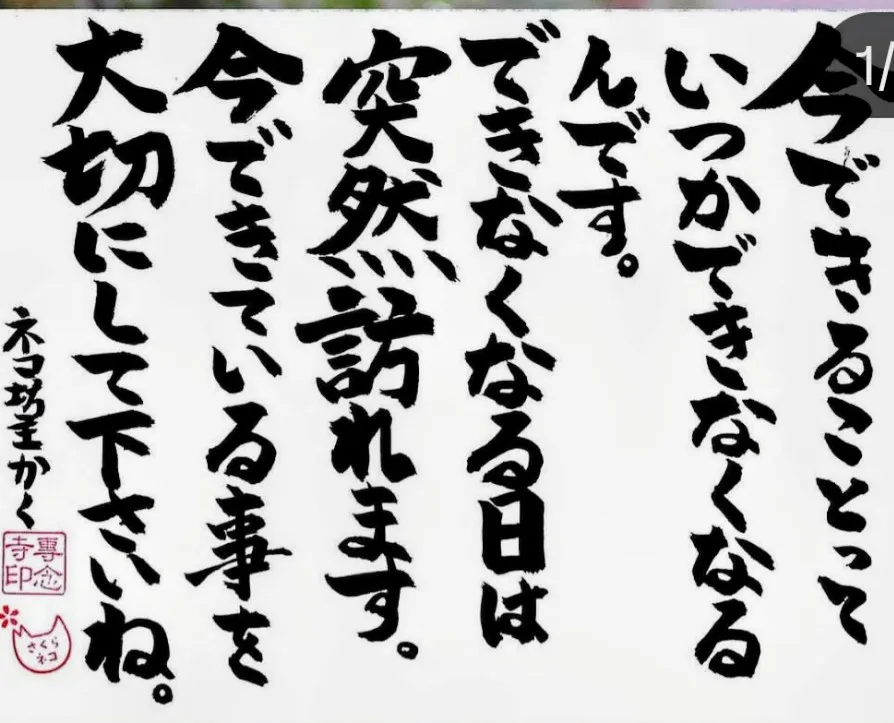 今できることって
いつかできなくなる
んです。
できなくなる日は
突然訪れます。
今できている事を
大切にして下さいね。
ネコ坊主かく
專念
寺印
さくら
ネコ
1/